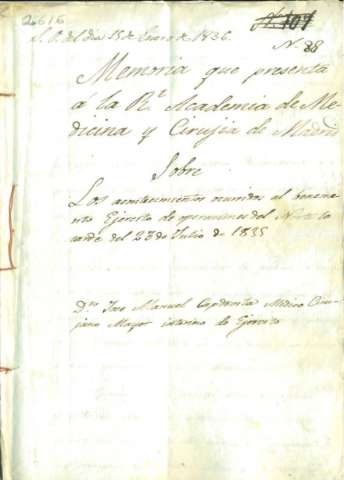 2616
S. P. del dia 15 de Enero de 1836.
N. 88
Memoria que presenta
á la Rl. Academia de Me-
dicina y Cirujia de Madrid
Sobre
Los acontecimientos ocurridos al beneme-
rito Ejército de operaciones del Norte la
tarde del 23 de Julio de 1835
Dn. Jose Manuel Médico Ciru-
jano Mayor interino de Ejército